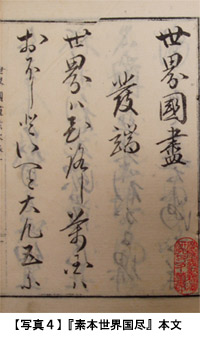 世界國盡
發端
世界ハひろし萬国ハ
おほしといへと大凡五に
【写真4】『素本世界国尽』本文